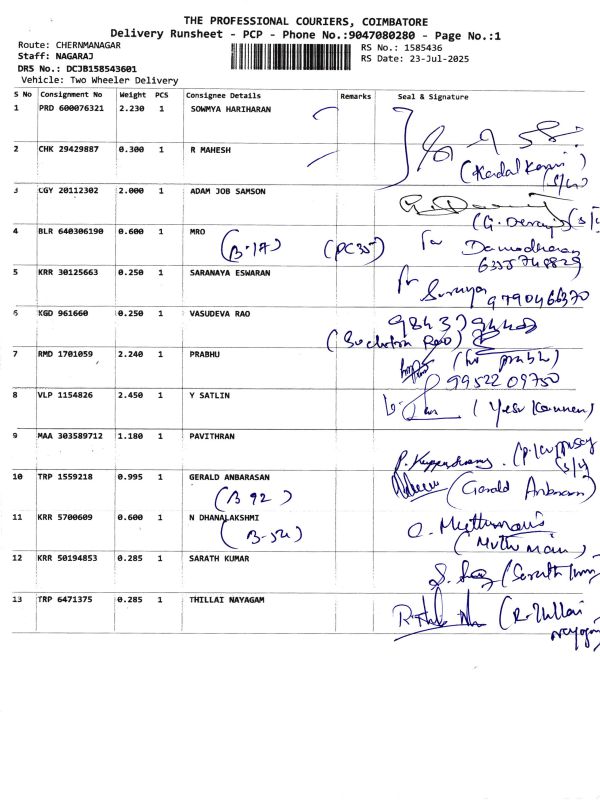 THE PROFESSIONAL COURIERS, COIMBATORE
Delivery Runsheet - PCP - Phone No.:9047080280 - Page No.:1
Route: CHERNMANAGAR
RS No.: 1585436
Staff: NAGARAJ
RS Date: 23-Jul-2025
DRS No.: DCJB158543601
Vehicle: Two Wheeler Delivery
S No Consignment No Weight PCS Consignee Details Remarks Seal & Signature
1 PRD 600076321 2.230 1 SOWMYA HARIHARAN
2 CHK 29429887 0.300 1 R MAHESH
3 CGY 20112302 2.000 1 ADAM JOB SAMSON
4 BLR 640306190 0.600 1 MRO
(B-17) (PC35) Damodharan
5 KRR 30125663 0.250 1 SARANAYA ESWARAN
9790466370
6 KGD 961660 0.250 1 VASUDEVA RAO
7 RMD 1701059 2.240 1 PRABHU
9952209750
8 VLP 1154826 2.450 1 Y SATLIN
9 MAA 303589712 1.180 1 PAVITHRAN
10 TRP 1559218 0.995 1 GERALD ANBARASAN
(B 92)
11 KRR 5700609 0.600 1 N DHANALAKSHMI
(B-54)
12 KRR 50194853 0.285 1 SARATH KUMAR
13 TRP 6471375 0.285 1 THILLAI NAYAGAM